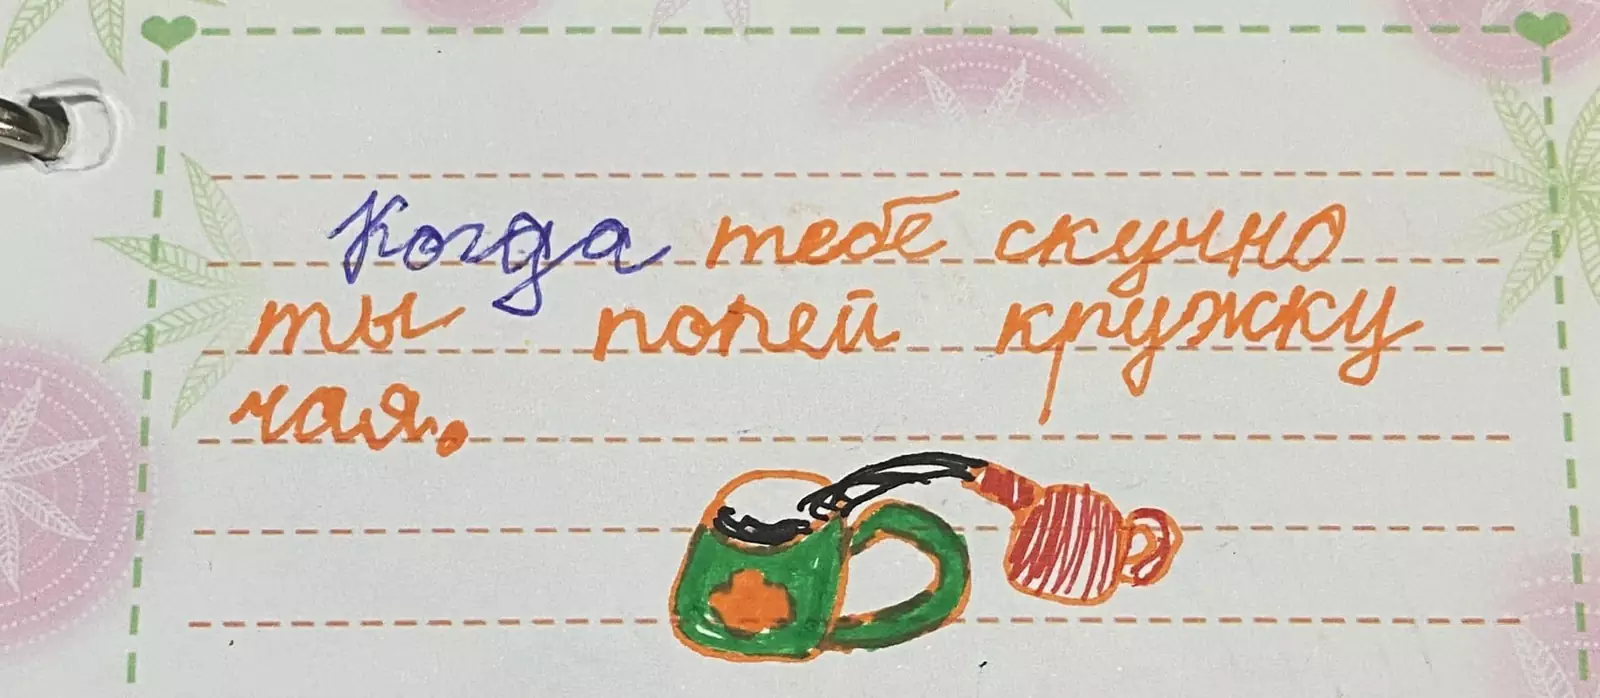 Когда тебе скучно
ты попей кружку
чая.